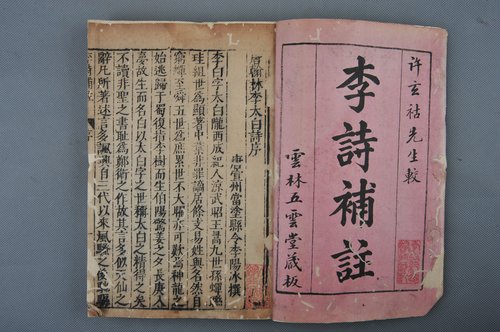 許玄祜先生較
李詩補註
雲林五雲堂藏板
唐翰林李太白詩序
唐宣州當塗縣令李陽冰撰
李白字太白隴西成紀人涼武昭王暠九世孫蟬聯
珪組世爲顯著中葉非罪謫居條支易姓與名然自
窮蟬至舜五世爲庶累世不大曜亦可歎焉神龍之
始逃歸于蜀復指李樹而生伯陽驚姜之夕長庚入
夢故生而名白以太白字之世稱太白之精得之矣
不讀非聖之書恥爲鄭衛之作故其言多似天仙之
辭凡所著述言多諷興自三代以來風騷之後